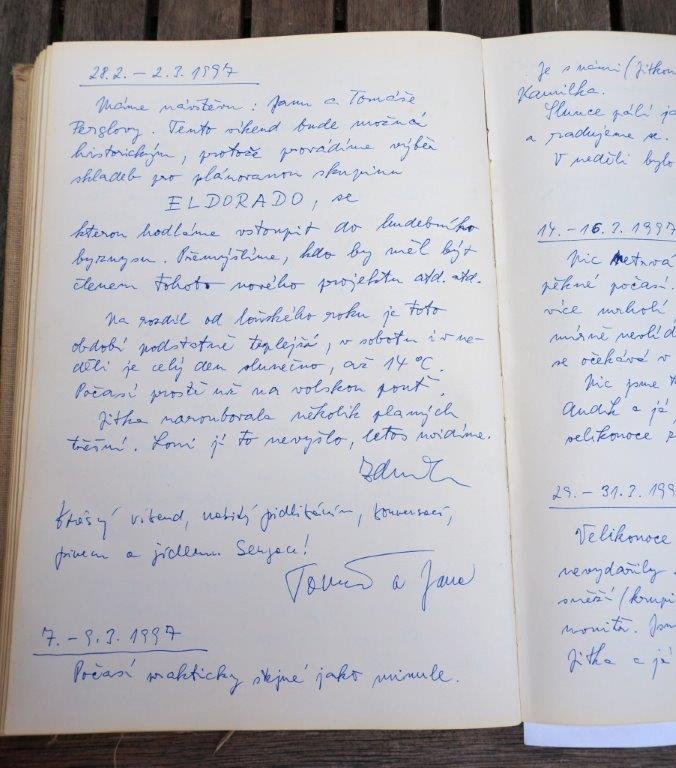 28.2. – 2.3. 1997
Máme návštěvu: Janu a Tomáše
Perglovy. Tento víkend bude možná
historickým, protože provádíme výběr
skladeb pro plánovanou skupinu
ELDORADO, se
kterou hodláme vstoupit do hudebního
byznysu. Přemýšlíme, kdo by měl být
členem tohoto nového projektu atd. atd.
Na rozdíl od loňského roku je toto
období podstatně teplejší, v sobotu i v ne-
děli je celý den slunečno, až 14 °C.
Počasí prostě už na volskou pouť.
Jitka naroubovala několik planých
třešní. Loni jí to nevyšlo, letos uvidíme.
Krásný víkend, nabitý pidlikáním, konverzací,
pivem a jídlem. Senzace!
Tomáš a Jana
7. – 9.3. 1997
Počasí prakticky stejné jako minule.
Je s námi (Jitkou
Kamilka.
Slunce pálí ja
a radujeme se.
V neděli bylo
14. – 16.3. 1997
Nic netrvá
pěkné počasí.
více mrholí
mírně
se očekává v
Nic jsme
Andík a já
velikonoce
29. – 31.3. 199
Velikonoce
nevydařily
sněží (krupi
Jitka a já